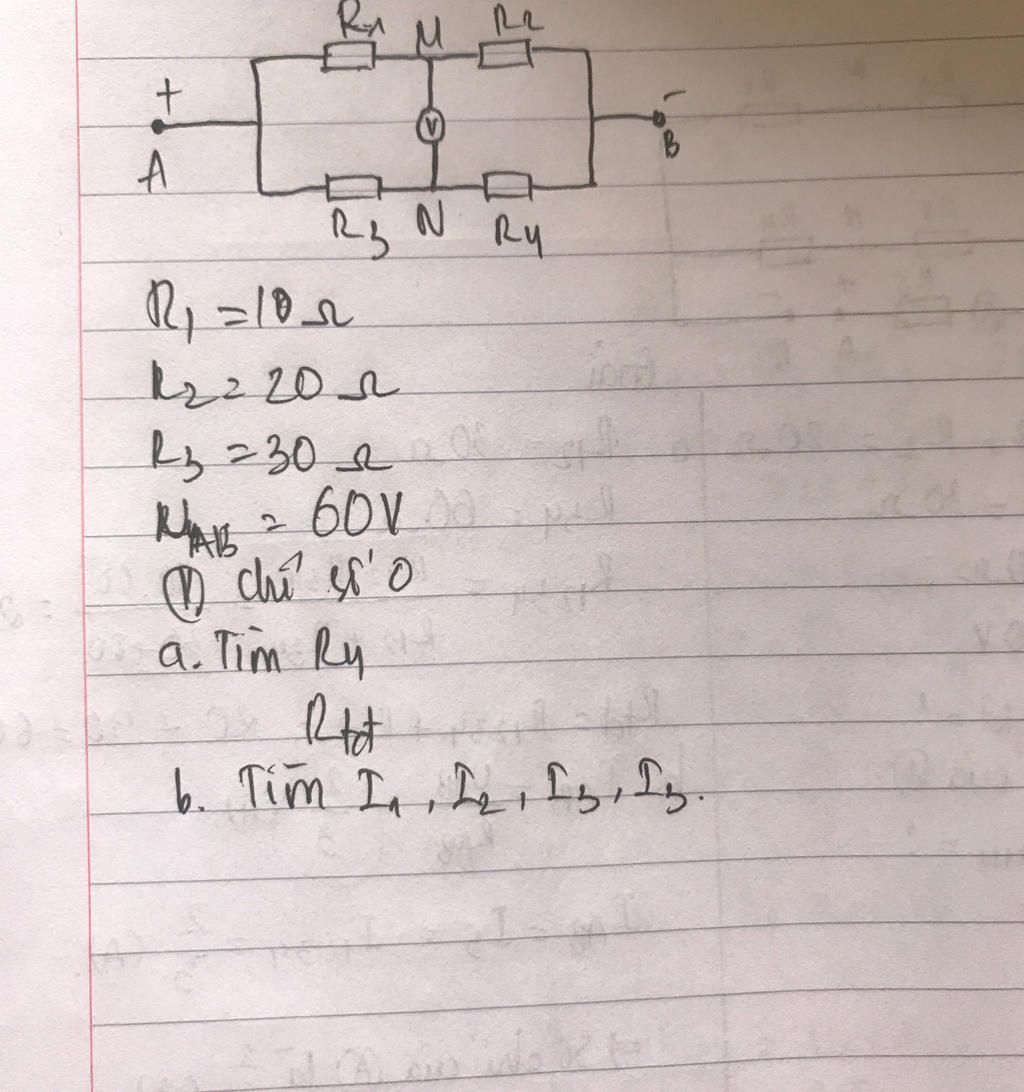 R1 M R2
+ -
V
A B
R3 N R4
R1 = 10 Ω
R2 = 20 Ω
R3 = 30 Ω
UAB = 60V
(V) chỉ số 0
a. Tìm R4
Rtđ
b. Tìm I1, I2, I3, I3.